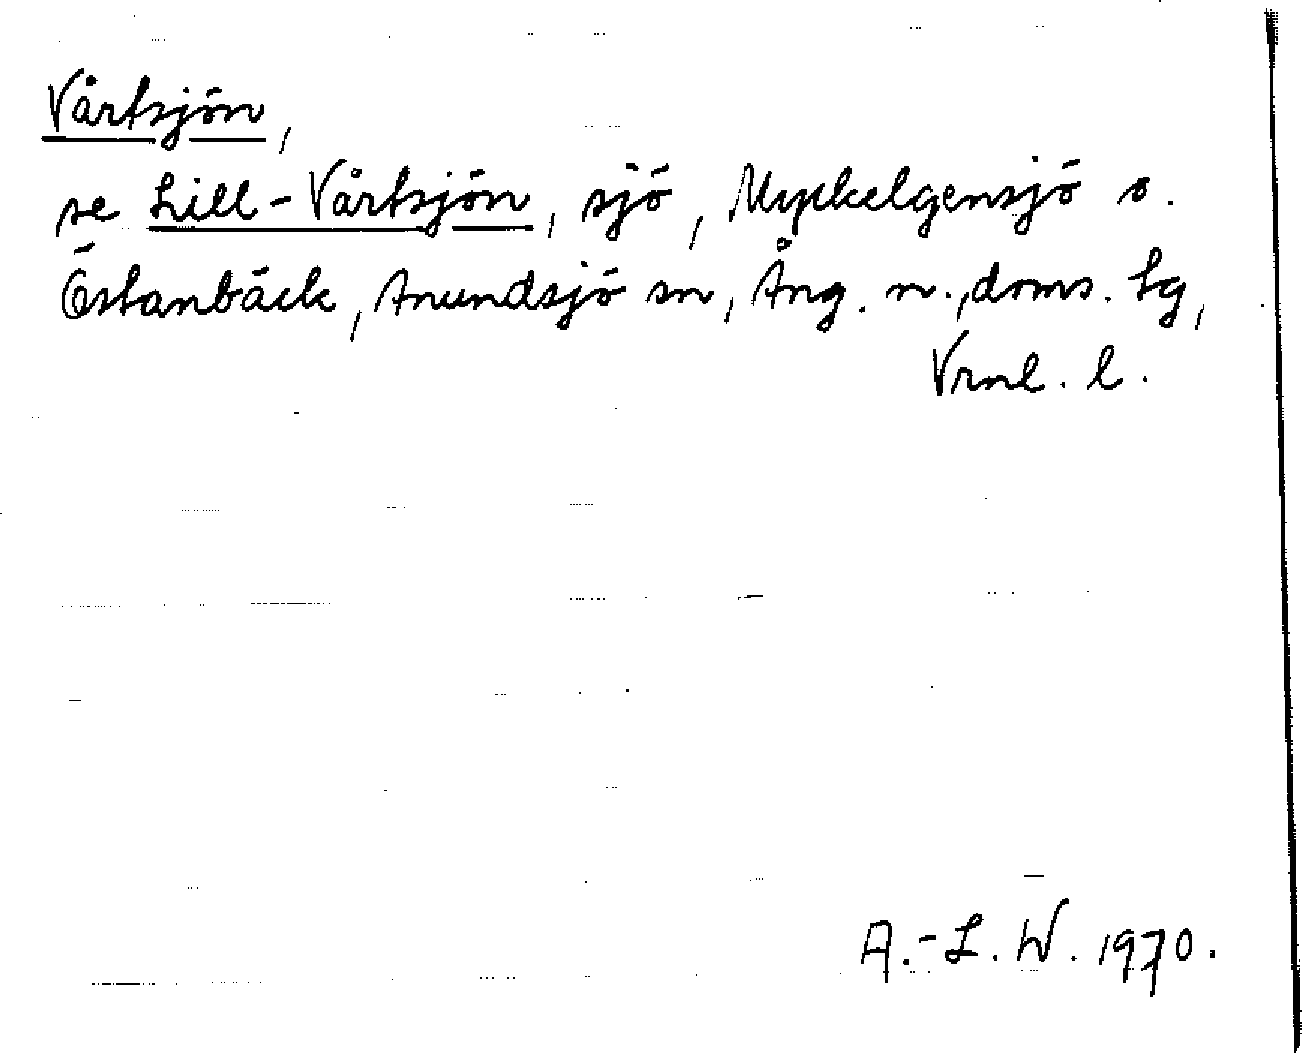 Vårtsjön,
se Lill-Vårtsjön, sjö, Myckelgensjö o.
Östanbäck, Anundsjö sn, Ång. n., doms. tg,
Vrnl. l.
A.-L. W. 1970.